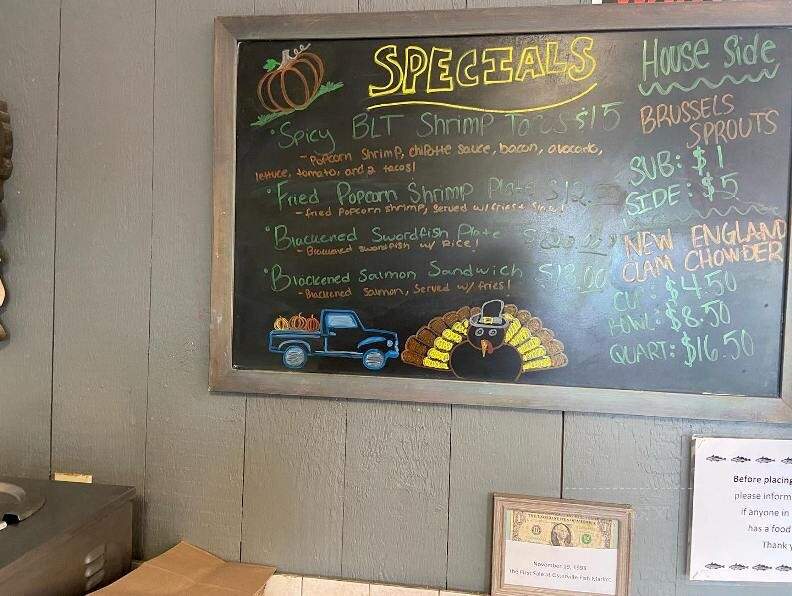 SPECIALS
• Spicy BLT Shrimp Tacos $15
- Popcorn Shrimp, chipotle sauce, bacon, avocado,
lettuce, tomato, and 2 tacos!
• Fried Popcorn Shrimp Plate $12.
- fried popcorn shrimp, served w/ fries +
• Blackened Swordfish Plate
- Blackened swordfish w/ Rice!
• Blackened Salmon Sandwich $18.00
- Blackened Salmon, served w/ fries!
House Side
BRUSSELS
SPROUTS
SUB: $1
SIDE: $5
NEW ENGLAND
CLAM CHOWDER
CUP: $4.50
BOWL: $8.50
QUART: $16.50
November 19, 1993
The First Sale at Osterville Fish Market
Before placing
please inform
if anyone in
has a food
Thank y